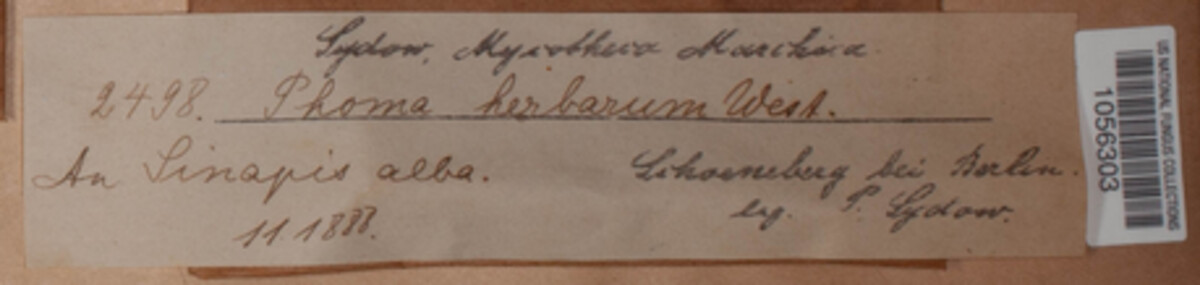 Sydow, Mycotheca Marchica.
2498. Phoma herbarum West.
An Sinapis alba.
Schoeneberg bei Berlin.
11.1888.
leg. P. Sydow.
US NATIONAL FUNGUS COLLECTIONS
1056303